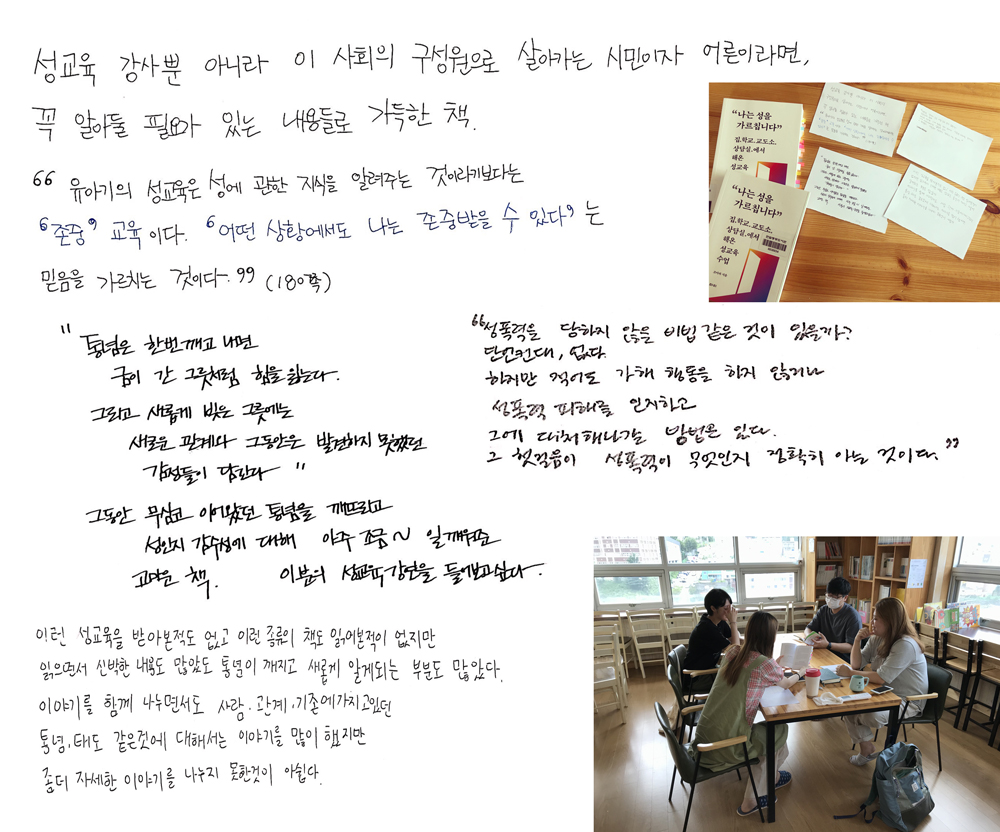 성교육 강사뿐 아니라 이 사회의 구성원으로 살아가는 시민이자 어른이라면,
꼭 알아둘 필요가 있는 내용들로 가득한 책.
“ 유아기의 성교육은 성에 관한 지식을 알려주는 것이라기보다는
‘존중’ 교육이다. ‘어떤 상황에서도 나는 존중받을 수 있다’는
믿음을 가르치는 것이다.” (180쪽)
" 통념은 한번 깨고 나면
금이 간 그릇처럼 힘을 잃는다.
그리고 새롭게 빚은 그릇에는
새로운 관계와 그동안은 발견하지 못했던
감정들이 담긴다 "
그동안 무심코 이어왔던 통념을 깨뜨리고
성인지 감수성에 대해 아주 조금~ 일깨워준
고마운 책. 이분의 성교육 강연을 들어보고싶다.
“성폭력을 당하지 않을 비법 같은 것이 있을까?
단언컨대, 없다.
하지만 적어도 가해 행동을 하지 않거나
성폭력 피해를 인지하고
그에 대처해나가는 방법은 있다.
그 첫걸음이 성폭력이 무엇인지 정확히 아는 것이다.”
이런 성교육을 받아본적도 없고 이런 종류의 책도 읽어본적이 없지만
읽으면서 신박한 내용도 많았도 통념이 깨지고 새롭게 알게되는 부분도 많았다.
이야기를 함께 나누면서도 사람. 관계, 기존에가지고있던
통념, 태도 같은것에 대해서는 이야기를 많이 했지만
좀더 자세한 이야기를 나누지 못한것이 아쉽다.
“나는 성을
가르칩니다”
집, 학교, 교도소,
상담실,에서
해온
성교육
“나는 성을
가르칩니다”
집, 학교, 교도소,
상담실,에서
해온
성교육
수업